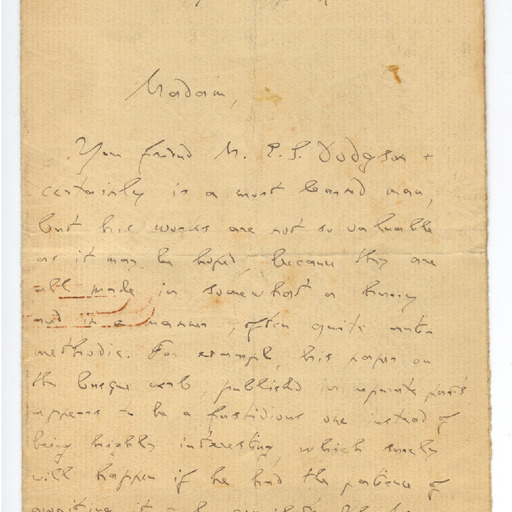 Madam,
Your friend Mr. E. S. Dodgson
certainly is a most learned man,
but his works are not so valuable
as it may be hoped, because they are
all made in somewhat a
and in a manner, often quite
methodic. For example, his paper on
the basque verb, published in separate parts
appears to be a fastidious one instead of
being highly interesting, which surely
will happen if he had the patience of